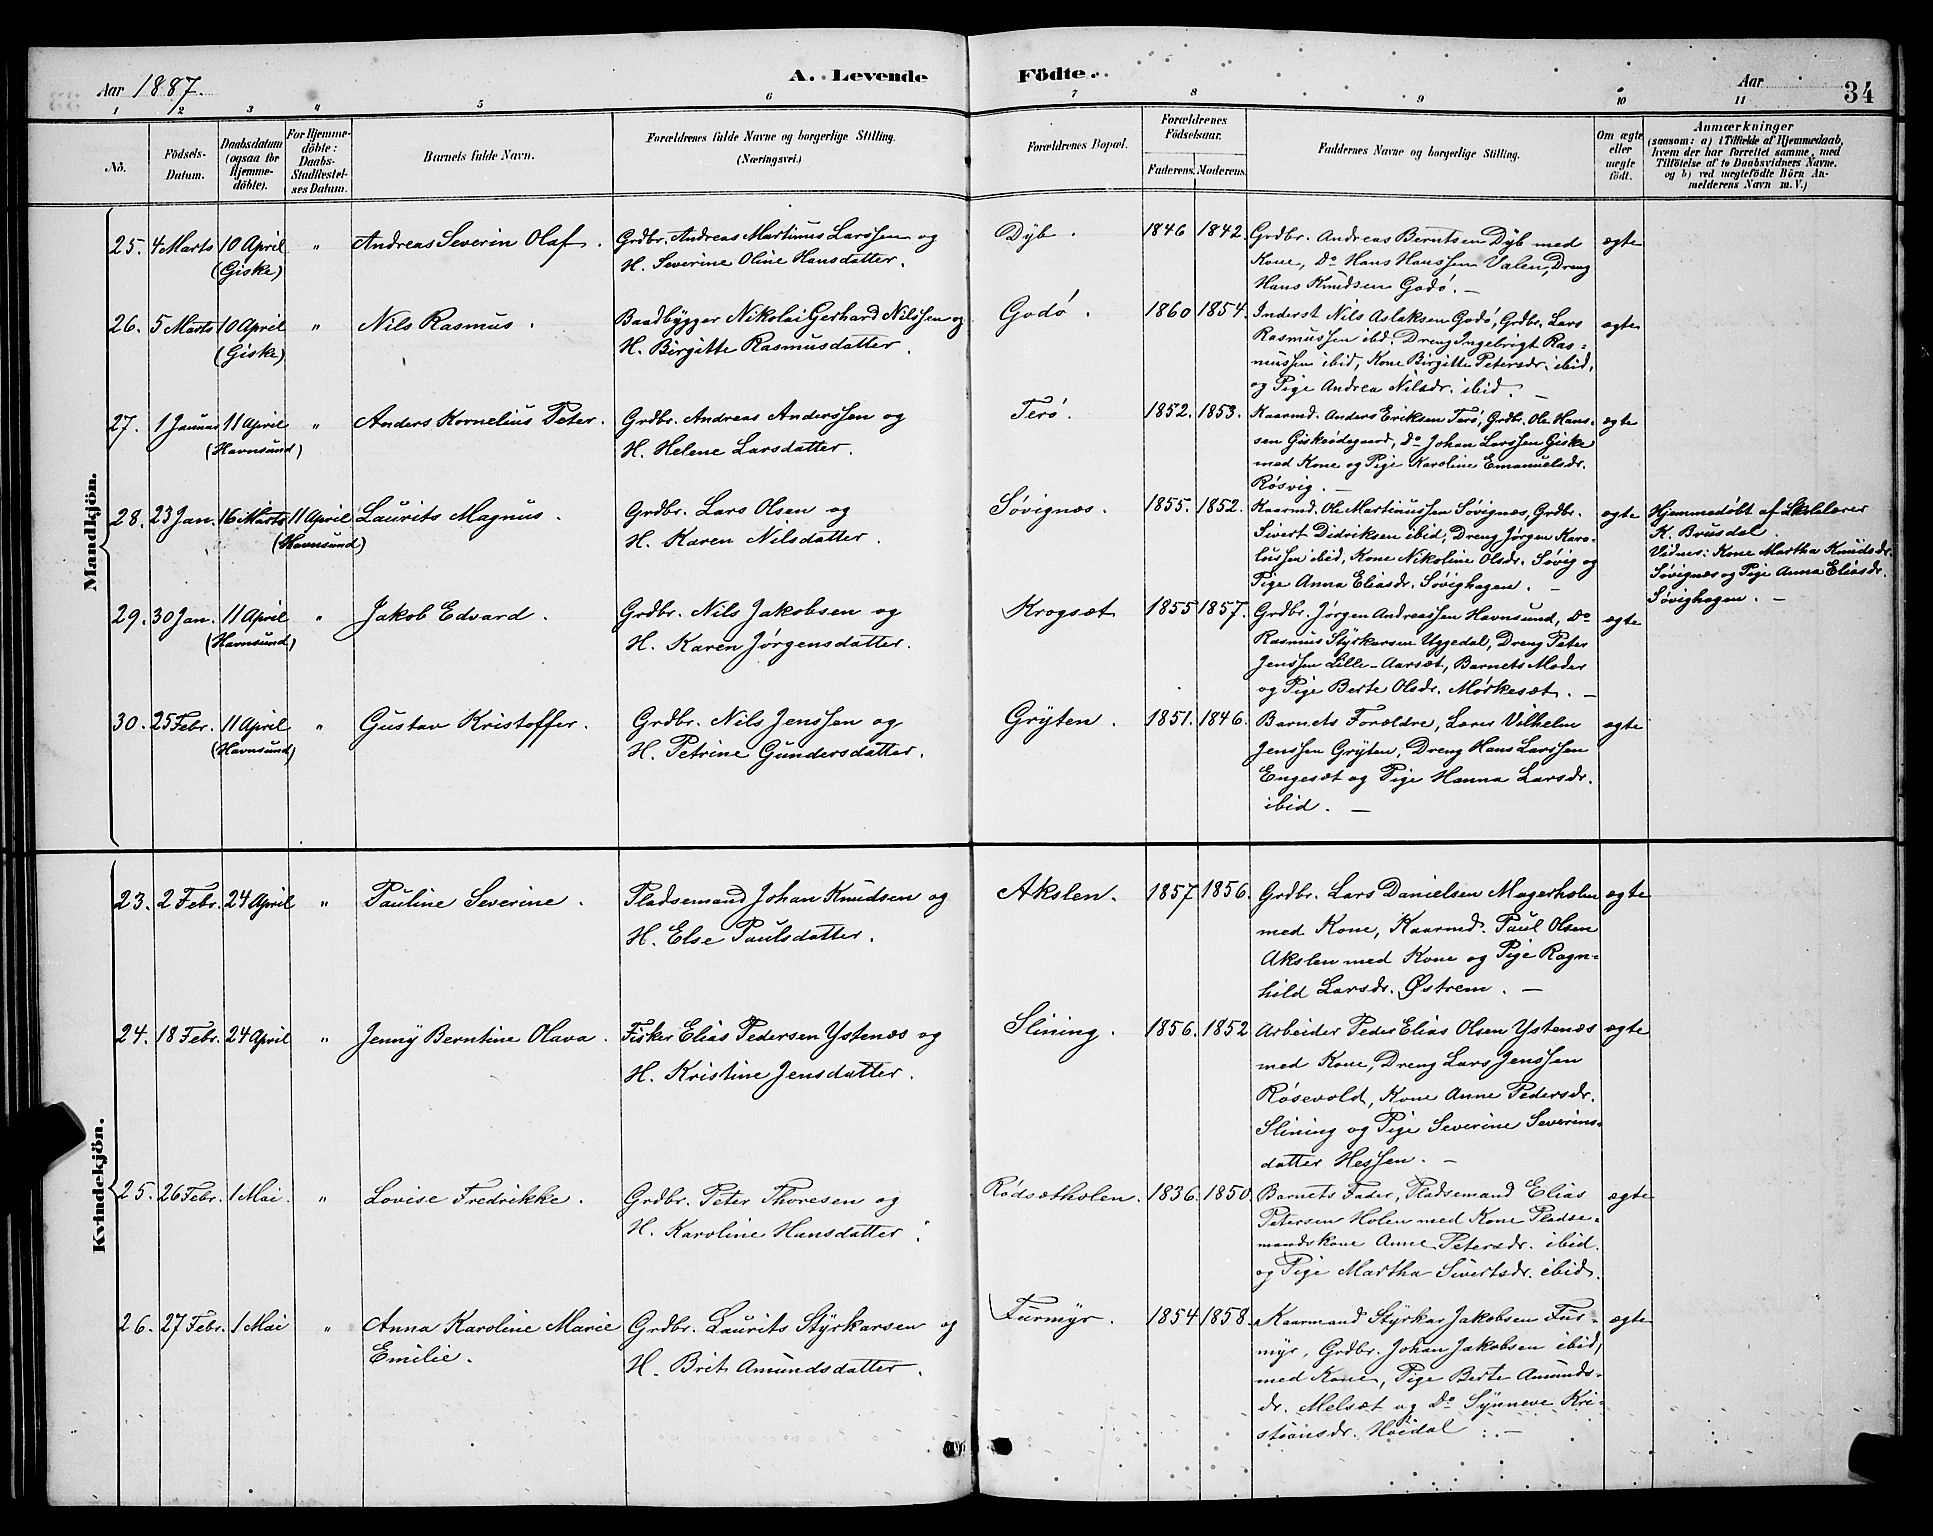 Aar 1887.
A. Levende Födte.
Aar
34
1 2 3 4 5 6 7 8 9 10 11
No.
Födsels-Datum.
Daabsdatum (ogsaa for Hjemme-döbte).
For Hjemme-döbte: Daabs-Stadfæstelses Datum.
Barnets fulde Navn.
Forældrenes fulde Navne og borgerlige Stilling. (Næringsvei.)
Forældrenes Bopæl.
Forældrenes Födselsaar.
Faderens. Moderens.
Faddernes Navne og borgerlige Stilling.
Om ægte eller uægte födt.
Anmærkninger
(saasom: a) i Tilfælde af Hjemmedaab, hvem der har forrettet samme, med Tilföielse af to Daabsvidners Navne, og b) ved uægtefödte Börn Anmelderens Navn m. V.)
Mandkjön.
25. 4 Marts 10 April (Giske) " Andreas Severin Olaf.
Grdbr. Andreas Martinus Larssen og
H. Severine Oline Hansdatter.
Dÿb. 1846 1842.
Grdbr. Andreas Berntsen Dÿb med
Kone, Do Hans Hanssen Valen, Dreng
Hans Knudsen Godö. —
ægte
26. 5 Marts 10 April (Giske) " Nils Rasmus.
Baadbÿgger Nikolai Gerhard Nilssen og
H. Birgitte Rasmusdatter.
Godö. 1860 1854.
Inderst Nils Aslaksen Godö, Grdbr. Lars
Rasmussen ibd, Dreng Ingebrigt Ras=
mussen ibid, Kone Birgitte Petersdr. ibid,
og Pige Andrea Nilsdr. ibid. —
ægte
27. 1 Januar 11 April (Havnsund) " Anders Kornelius Peter.
Grdbr. Andreas Anderssen og
H. Helene Larsdatter.
Terö. 1852. 1853.
Kaarmd. Anders Eriksen Terö, Grdbr. Ole Hans=
sen Giskeödegaard, Do Johan Larssen Giske
med Kone og Pige Karoline Emanuelsdr.
Røsvig. —
ægte
28. 23 Jan. 16 Marts 11 April (Havnsund) Laurits Magnus.
Grdbr. Lars Olsen og
H. Karen Nilsdatter.
Søvignæs. 1855. 1852.
Kaarmd. Ole Martinussen Søvignæs, Grdbr.
Sivert Didriksen ibid, Dreng Jørgen Karo-
lussen ibid, Kone Nikoline Olsdr. Søvig og
Pige Anna Eliasdr. Søvighagen. —
ægte
Hjemmedøbt af Skolelærer
K. Brusdal.
Vidner: Kone Martha Knudsdr.
Søvignæs og Pige Anna Eliasdr.
Søvighagen. —
29. 30 Jan. 11 April (Havnsund) " Jakob Edvard.
Grdbr. Nils Jakobsen og
H. Karen Jørgensdatter.
Krogsæt 1855 1857.
Grdbr. Jørgen Andreassen Havnsund, Do
Rasmus Stÿrkarsen Uggedal, Dreng Peter
Jenssen Lille-Aarsæt, Barnets Moder
og Pige Berte Olsdr. Mørkesæt. —
ægte
30. 25 Febr. 11 April (Havnsund) " Gustav Kristoffer.
Grdbr. Nils Jenssen og
H. Petrine Gundersdatter.
Grÿten. 1851. 1846.
Barnets Forældre, Lars Vilhelm
Jenssen Grÿten, Dreng Hans Larssen
Engesæt og Pige Hanna Larsdr.
ibid. —
ægte
Kvindekjön.
23. 2 Febr. 24 April " Pauline Severine.
Pladsemand Johan Knudsen og
H. Else Paulsdatter.
Akslen. 1857 1856.
Grdbr. Lars Danielsen Magerholm
med Kone, Kaarmd. Paul Olsen
Akslen med Kone og Pige Ragn-
hild Larsdr. Østrem. —
ægte
24. 18 Febr. 24 April " Jennÿ Berntine Olava.
Fisker Elias Pedersen Ystenæs og
H. Kristine Jensdatter.
Slining. 1856. 1852
Arbeider Peder Elias Olsen Ystenæs
med Kone, Dreng Lars Jenssen
Røsevold, Kone Anne Pedersdr.
Slining og Pige Severine Severins-
datter Hessen. —
ægte
25. 26 Febr. 1 Mai. " Lovise Fredrikke.
Grdbr. Peter Thoresen og
H. Karoline Hansdatter.
Rødsætholen. 1836. 1850.
Barnets Fader, Pladsemand Elias
Petersen Holen med Kone Pladse-
mandskone Anne Petersdr. ibid.
og Pige Martha Sivertsdr. ibid.
ægte
26. 27 Febr. 1 Mai " Anna Karoline Marie
Emilie.
Grdbr. Laurits Stÿrkarsen og
H. Brit Amundsdatter.
Furmÿr. 1854 1858.
Kaarmand Stÿrkar Jakobsen Fur-
mÿr, Grdbr. Johan Jakobsen ibid,
med Kone, Pige Berte Amunds-
dr. Melsæt og Do Sÿnneve Kri-
stiansdr. Høidal. —
ægte